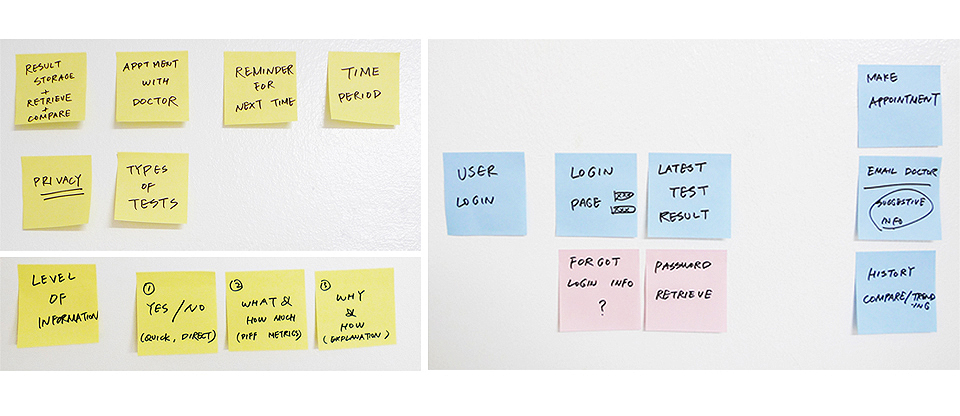 RESULT
STORAGE
+
RETRIEVE
+
COMPARE
APPTMENT
WITH
DOCTOR
REMINDER
FOR
NEXT TIME
TIME
PERIOD
PRIVACY
TYPES
OF
TESTS
LEVEL
OF
INFORMATION
1
YES/NO
(QUICK, DIRECT)
2
WHAT &
HOW MUCH
(DIFF METRICS)
3
WHY
&
HOW
(EXPLANATION)
USER
LOGIN
LOGIN
PAGE
LATEST
TEST
RESULT
FORGOT
LOGIN INFO
?
PASSWORD
RETRIEVE
MAKE
APPOINTMENT
EMAIL DOCTOR
SUGGESTIVE
INFO
HISTORY
COMPARE/TREND
-ING